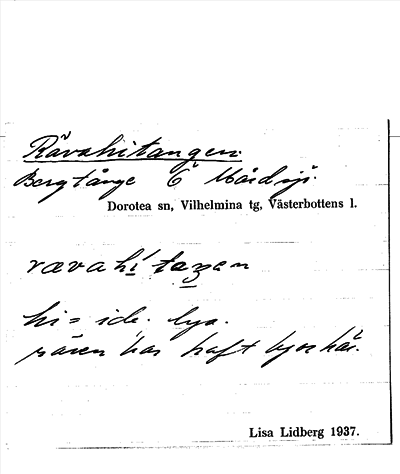 Rävahitangen.
Bergtånge Ö Mårdsjö.
Dorotea sn, Vilhelmina tg, Västerbottens l.
rævahí taŋen
hi = ide. lya.
räven har haft lyor här.
Lisa Lidberg 1937.